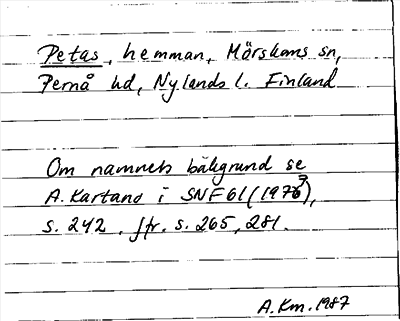 Petas, hemman, Mörskoms sn,
Pernå hd, Nylands l. Finland
Om namnets bakgrund se
A. Kartano i SNF 61 (1973),
s. 242. Jfr. s. 265, 281.
A.Km. 1987